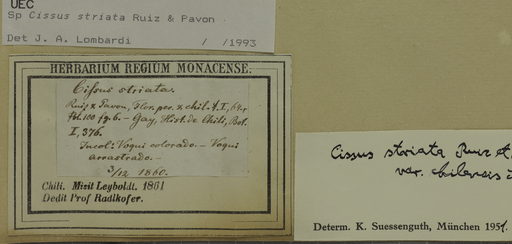 UEC
Sp Cissus striata Ruiz & Pavon
Det J. A. Lombardi / /1993
HERBARIUM REGIUM MONACENSE.
Cissus striata.
Ruiz & Pavon, Flor. per. & chil. t. I, 64.
100 fg. b. – Gay, Hist. de Chili, Bot.
I, 376.
Incol: Voqui colorado. – Voqui
arrastrado. –
3/12 1860.
Chili. Misit Leyboldt. 1861
Dedit Prof Radlkofer.
Cissus striata Ruiz et
var. chilensis
Determ. K. Suessenguth, München 1951.